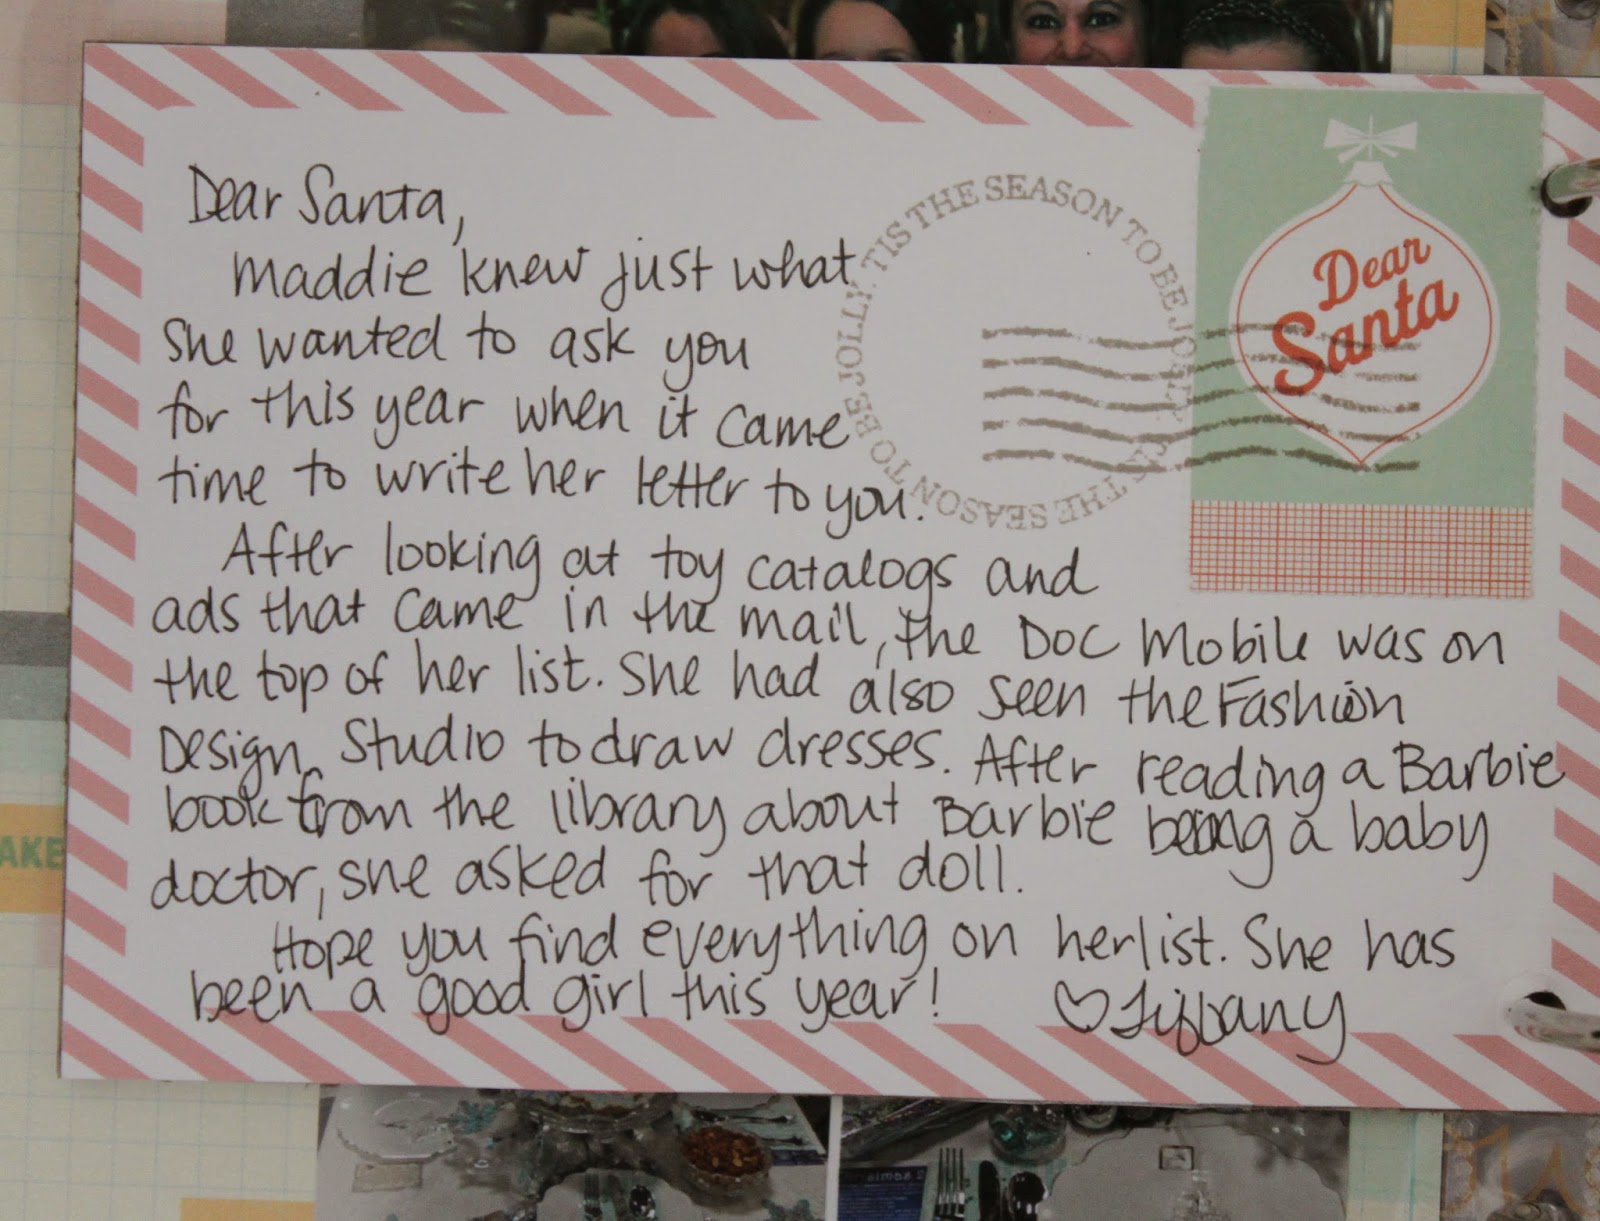 Dear Santa,
Maddie knew just what
she wanted to ask you
for this year when it came
time to write her letter to you.
After looking at toy catalogs and
ads that came in the mail, the Doc Mobile was on
the top of her list. She had also seen the Fashion
Design Studio to draw dresses. After reading a Barbie
book from the library about Barbie being a baby
doctor, she asked for that doll.
Hope you find everything on her list. She has
been a good girl this year!
♡ Tiffany
'TIS THE SEASON TO BE JOLLY. 'TIS THE SEASON TO BE JOLLY.
Dear
Santa
AKE